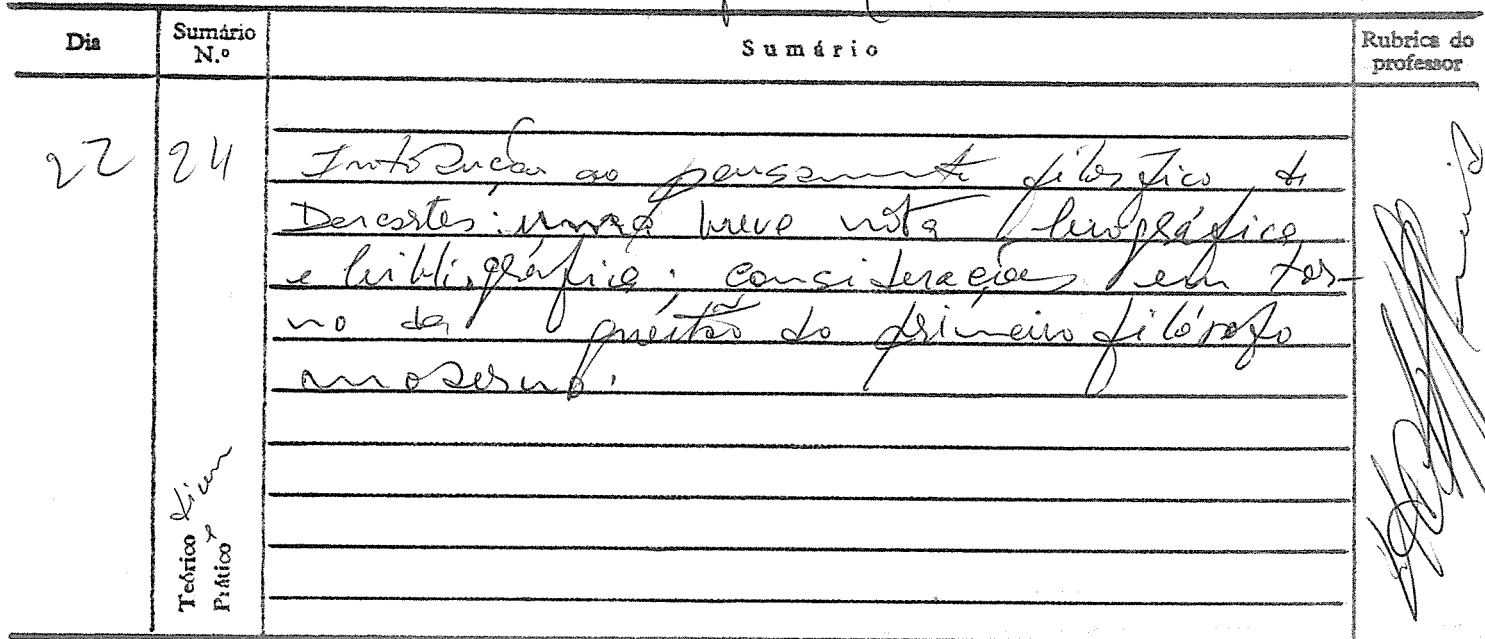 Dia
Sumário N.º
Sumário
Rubrica do professor
22
24
Introdução ao pensamento filosófico de
Descartes: uma breve nota biográfica
e bibliográfica; considerações em tor-
no da questão do primeiro filósofo
moderno.
Teórico
Prático